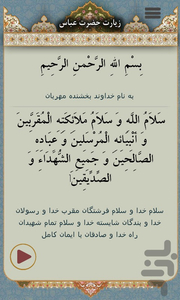 زیارت حضرت عباس
بِسْمِ اللهِ الرَّحْمنِ الرَّحِيمِ
به نام خداوند بخشنده مهربان
سَلامُ اللَّهِ وَ سَلامُ مَلائِكَتِهِ الْمُقَرَّبِينَ
وَ أَنْبِيَائِهِ الْمُرْسَلِينَ وَ عِبَادِهِ
الصَّالِحِينَ وَ جَمِيعِ الشُّهَدَاءِ وَ
الصِّدِّيقِينَ
سلام خدا و سلام فرشتگان مقرب خدا و رسولان
خدا و بندگان شایسته خدا و سلام تمام شهیدان
راه خدا و صادقان با ایمان کامل